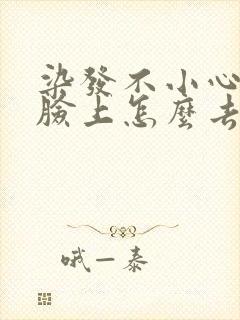 染發不小心
臉上怎麼去
哦一泰